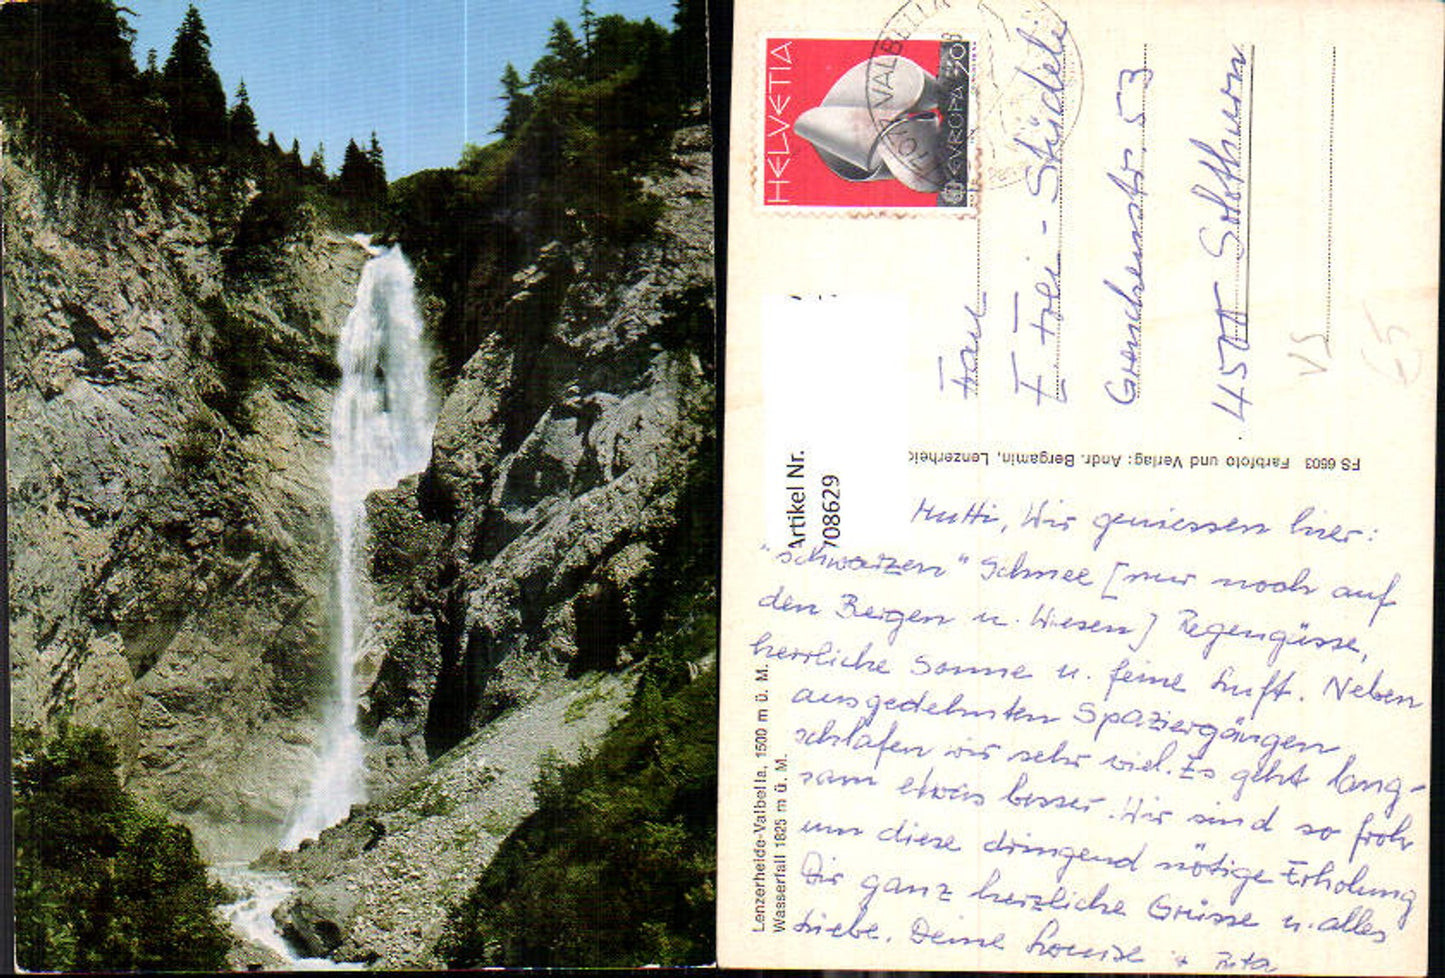 HELVETIA
EUROPA
VALBELLA
Frau
E. Frei - Stüdeli
Grenchenstr. 53
4500 Solothurn
VS
65
Artikel Nr.
708629
FS 6603 Farbfoto und Verlag: Andr. Bergamin, Lenzerheid
Lenzerheide-Valbella, 1500 m ü. M.
Wasserfall 1625 m ü. M.
Mutti, Wir geniessen hier:
"schwarzen" Schnee [nur noch auf
den Bergen u. Wiesen] Regengüsse,
herrliche Sonne u. feine Luft. Neben
ausgedehnten Spaziergängen
schlafen wir sehr viel. Es geht lang-
sam etwas besser. Wir sind so froh
um diese dringend nötige Erholung
Dir ganz herzliche Grüsse u. alles
Liebe. Deine Louise +